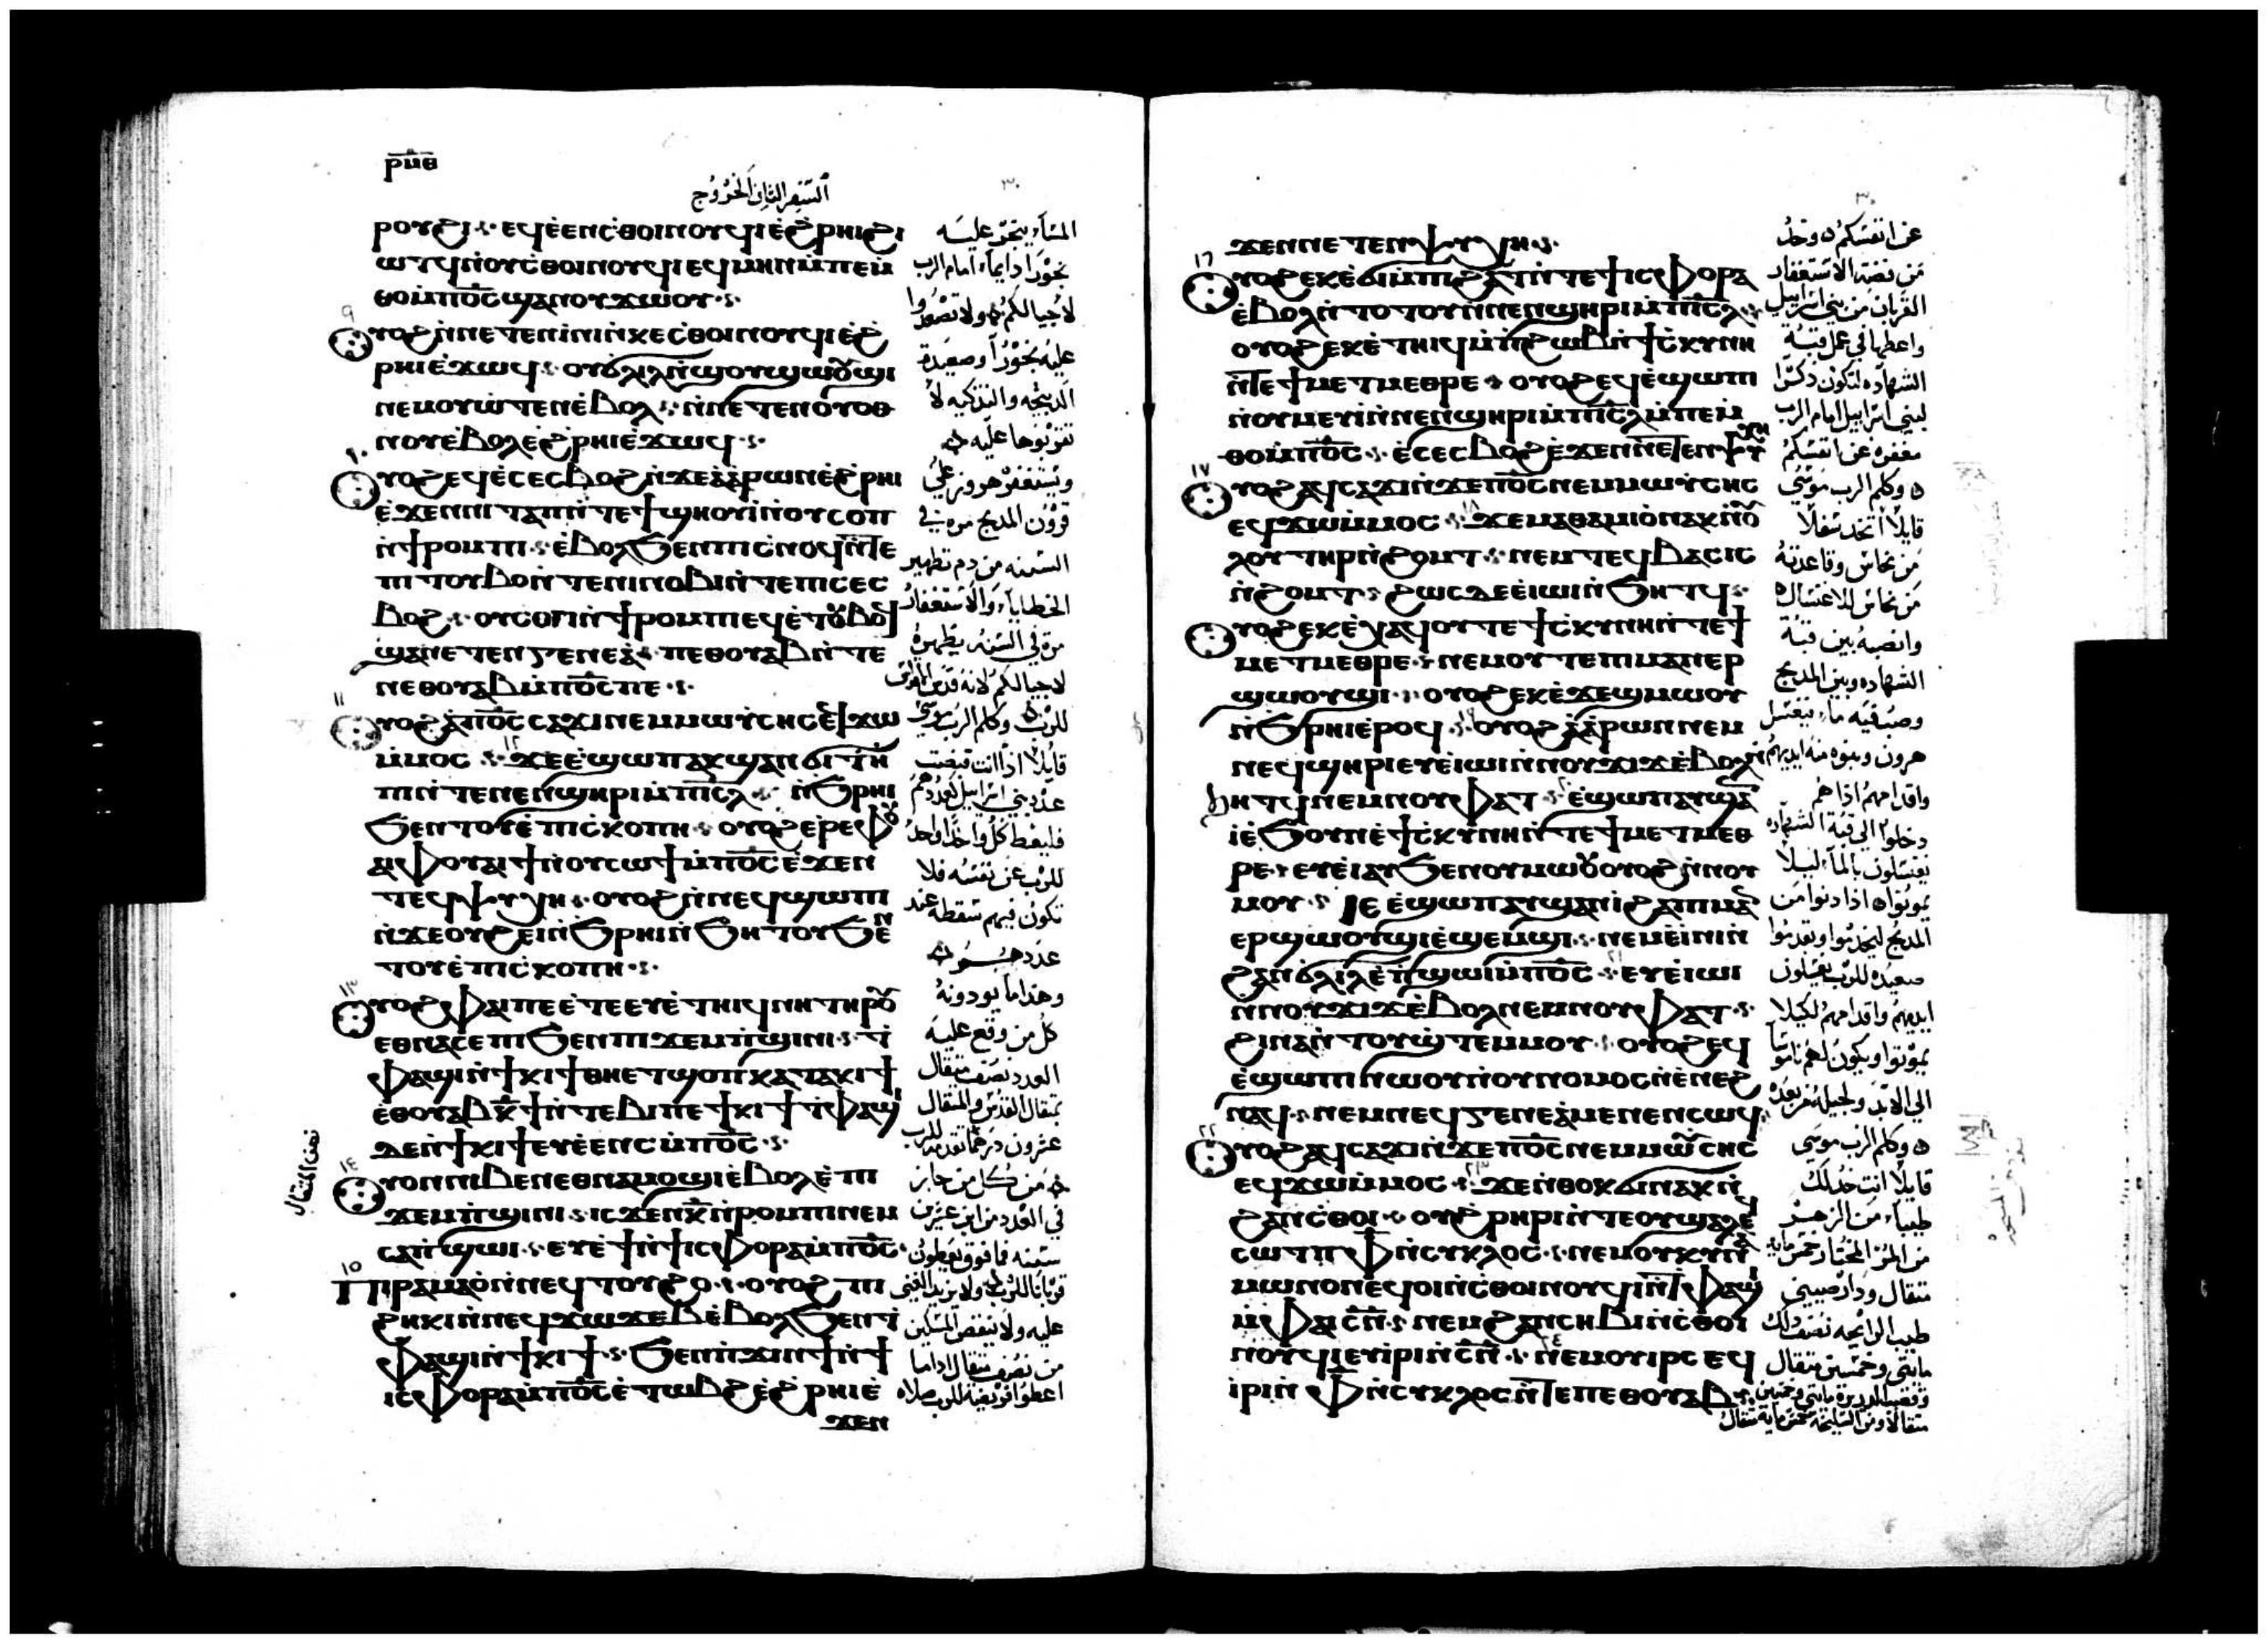 ⲣⲡⲑ
السفر الثانى الخروج
ⲣⲟⲩϩⲓ ⲉϥⲉ̀ⲉⲛⲥ̀ⲑⲟⲓⲛⲟⲩϥⲓⲉ̀ϩⲣⲏⲓϩⲓ
ⲱⲧϥⲛ̀ⲟⲩⲥ̀ⲑⲟⲓⲛⲟⲩϥⲓⲉϥⲙⲏⲛⲙ̀ⲡⲉⲙ̀
ⲑⲟⲙ̀ⲡⲟ̅ⲥ̅ϣⲁⲛⲟⲩϫⲱⲟⲩ
٩
ⲟⲩⲟϩⲛ̀ⲛⲉⲧⲉⲛⲓⲛⲓⲛ̀ⲕⲉⲥ̀ⲑⲟⲓⲛⲟⲩϥⲓⲉ̀ϩ
ⲣⲏⲓⲉ̀ϫⲱϥ ⲟⲩϭⲗⲓⲗⲛ̀ϣⲟⲩϣⲱⲟⲩϣⲓ
ⲛⲉⲙⲟⲩⲱ̀ⲧⲉⲛⲉ̀ⲃⲟⲗ ⲛ̀ⲛⲉⲧⲉⲛⲟⲩⲟⲑ
ⲛⲟⲩⲉ̀ⲃⲟⲗⲉ̀ϩⲣⲏⲓⲉ̀ϫⲱϥ
١٠
ⲟⲩⲟϩⲉϥⲉ̀ⲥⲉⲥⲃⲟϩⲛ̀ϫⲉⲁ̀ⲁⲣⲱⲛⲉ̀ϩⲣⲏⲓ
ⲉ̀ϫⲉⲛⲛⲓⲧⲁⲡⲛ̀ⲧⲉϯϣⲏⲟⲩⲓ̀ⲛ̀ⲟⲩⲥⲟⲡ
ⲛ̀ϯⲣⲟⲙⲡⲓ ⲉ̀ⲃⲟⲗϧⲉⲛⲡⲓⲥ̀ⲛⲟϥⲛ̀ⲧⲉ
ⲡⲓⲧⲟⲩⲃⲟⲛ̀ⲧⲉⲛⲓⲛⲟⲃⲓⲛ̀ⲧⲉⲡⲓⲥⲉⲥ
ⲃⲟϩ ⲟⲩⲥⲟⲡⲛ̀ϯⲣⲟⲙⲡⲉϥⲉ̀ⲧⲟⲩⲃⲟϥ
ϣⲁⲛⲉⲧⲉⲛⲅⲉⲛⲉⲁ̀ ⲡⲉⲑⲟⲩⲁⲃⲛ̀ⲧⲉ
ⲛⲉⲑⲟⲩⲁⲃⲙ̀ⲡⲟ̅ⲥ̅ⲡⲉ
١١
ⲟⲩⲟϩⲁ̀ⲡⲟ̅ⲥ̅ⲥⲁϫⲓⲛⲉⲙⲙⲱⲩ̀ⲥⲏⲥⲉϥϫⲱ
ⲙ̀ⲙⲟⲥ ١٢ ϫⲉⲉ̀ϣⲱⲡⲁⲕϣⲁⲛϭⲓⲧⲏ̀
ⲡⲓⲛ̀ⲧⲉⲛⲉⲛϣⲏⲣⲓⲙ̀ⲡⲓ̅ⲥ̅ⲗ̅ ⲛ̀ϧⲣⲏⲓ
ϧⲉⲛⲧⲟⲩⲉ̀ⲡⲓⲥⲕⲟⲡⲏ ⲟⲩⲟϩⲉⲣⲉⲫⲟⲩ
ⲁⲫⲟⲩⲁⲓϯⲛ̀ⲟⲩⲥⲱϯⲙ̀ⲡⲟ̅ⲥ̅ⲉ̀ϫⲉⲛ
ⲧⲉϥⲯⲩⲭⲏ ⲟⲩⲟϩⲛ̀ⲛⲉϥϣⲱⲡⲓ
ⲛ̀ϫⲉⲟⲩϩⲉⲓⲛ̀ϧⲣⲏⲓⲛ̀ϧⲏⲧⲟⲩϧⲉⲛ
ⲧⲟⲩⲉ̀ⲡⲓⲥ̀ⲕⲟⲡⲏ
١٣
ⲟⲩⲟϩⲫⲁⲓⲡⲉⲉ̀ⲧⲉⲉⲩⲉ̀ⲧⲏⲓϥⲛⲏⲧⲏⲣⲟⲩ
ⲉⲑⲛⲁⲥⲉⲡⲓϧⲉⲛⲡⲓϫⲉⲙⲡ̀ϣⲓⲛⲓ ⲧ̀
ⲫⲁϣⲓⲛ̀ϯⲕⲓϯⲑⲏⲉⲧϣⲟⲡⲕⲁⲧⲁⲕⲓϯ
ⲉ̀ⲑⲟⲩⲁⲃⲕ̅ϯⲛ̀ⲧⲉⲃⲓⲡⲉϯⲕⲓϯⲧ̀ⲫⲁϣⲓ
ⲇⲉⲛ̀ϯⲕⲓϯⲉⲩⲉ̀ⲉⲛⲥⲙ̀ⲡⲟ̅ⲥ̅
١٤
ⲟⲩⲟⲛⲛⲓⲃⲉⲛⲉⲑⲛⲁⲙⲟϣⲓⲉ̀ⲃⲟⲗⲉ̀ⲡⲓ
ϫⲉⲙⲡ̀ϣⲓⲛⲓ ⲓⲥϫⲉⲛⲕ̅ⲛ̀ⲣⲟⲙⲡⲓⲛⲉⲙ
ⲥⲁⲛ̀ϣⲱⲓ ⲉⲩⲉ̀ϯⲛ̀ϯⲓⲥⲫⲟⲣⲁⲙ̀ⲡⲟ̅ⲥ̅
١٥
ⲡⲓⲣⲁⲙⲁⲟ̀ⲛ̀ⲛⲉϥⲧⲟⲩϩⲟ ⲟⲩⲟϩⲡⲓ
ϩⲏⲕⲓⲛ̀ⲛⲉϥϫⲱϫⲉⲃⲉ̀ⲃⲟⲗϧⲉⲛⲧ̀
ⲫⲁϣⲓⲛ̀ϯⲕⲓϯ ϧⲉⲛⲡ̀ϫⲓⲛϯⲛ̀ϯ
ⲓⲥⲫⲟⲣⲁⲙ̀ⲡⲟ̅ⲥ̅ⲉ̀ⲧⲱⲃϩⲉ̀ϩⲣⲏⲓⲉ̀
ϫⲉⲛ
٣٠
المساء يبخر عليه
بخورا دايما امام الرب
لاجيالكم ولا تصعدوا
عليه بخورا وصعيدة
الذبيحه والتذكيه لا
تقربوها عليه
ويستغفر هرون على
قرون المذبح مره فى
السنه من دم تطهير
الخطايا والاستغفار
مرة فى السنه يطهره
لاجيالكم لانه قدس القدس
للرب وكلم الرب موسى
قايلا اذا انت قبضت
عدد بنى اسراييل بعددهم
فليعط كل واحد واحد
للرب عن نفسه فلا
تكون فيهم سقطه عند
عددهم
وهذا ما يودونه
كل من وقع عليه
العدد نصف مثقال
بمثقال القدس والمثقال
عشرون درهما تقدمه للرب
من كل من جاز
فى العدد من ابن عشرين
سنه فما فوق يعطون
قربانا للرب ولا يزيد الغنى
عليه ولا ينقص المسكين
من نصف مثقال اذا ما
اعطوا فريضة للرب صلاه
نصف المثقال
ϫⲉⲛⲛⲉⲧⲉⲛⲯⲩⲭⲏ
١٦
ⲟⲩⲟϩⲉⲕⲉ̀ϭⲓⲙ̀ⲡⲓϩⲁⲧⲛ̀ⲧⲉϯⲓⲥⲫⲟⲣⲁ
ⲉ̀ⲃⲟⲗⲛ̀ⲧⲟⲧⲟⲩⲛ̀ⲛⲉⲛϣⲏⲣⲓⲙ̀ⲡⲓ̅ⲥ̅ⲗ̅
ⲟⲩⲟϩⲉⲕⲉ̀ⲧⲏⲓϥⲙ̀ⲡ̀ϩⲱⲃⲛ̀ϯⲥ̀ⲕⲩⲛⲏ
ⲛ̀ⲧⲉϯⲙⲉⲧⲙⲉⲑⲣⲉ ⲟⲩⲟϩⲉϥⲉ̀ϣⲱⲡⲓ
ⲛ̀ⲟⲩⲙⲉⲩⲓ̀ⲛ̀ⲛⲉⲛϣⲏⲣⲓⲙ̀ⲡⲓ̅ⲥ̅ⲗ̅ⲙ̀ⲡⲉⲙ̀
ⲑⲟⲙ̀ⲡⲟ̅ⲥ̅ ⲉ̀ⲥⲉⲥⲃⲟϩⲉ̀ϫⲉⲛⲛⲉⲧⲉⲛⲯⲩⲭⲏ
١٧
ⲟⲩⲟϩⲁϥⲥⲁϫⲓⲛ̀ϫⲉⲡⲟ̅ⲥ̅ⲛⲉⲙⲙⲱⲩ̀ⲥⲏⲥ
ⲉϥϫⲱⲙ̀ⲙⲟⲥ ١٨ ϫⲉⲙⲁⲑⲁⲙⲓⲟ̀ⲛⲁⲕⲛ̀ⲟⲩ
ⲗⲟⲩⲧⲏⲣⲛ̀ϩⲟⲙⲧ ⲛⲉⲙⲧⲉϥⲃⲁⲥⲓⲥ
ⲛ̀ϩⲟⲙⲧ ϩⲱⲥⲇⲉⲉ̀ⲓⲱⲓⲛ̀ϧⲏⲧϥ
ⲟⲩⲟϩⲉⲕⲉ̀ⲭⲁϥⲟⲩⲧⲉϯⲥ̀ⲕⲩⲛⲏⲛ̀ⲧⲉϯ
ⲙⲉⲧⲙⲉⲑⲣⲉ ⲛⲉⲙⲟⲩⲧⲉⲡⲓⲙⲁⲛⲉⲣ
ϣⲱⲟⲩϣⲓ ⲟⲩⲟϩⲉⲕⲉ̀ϫⲉϣⲙⲱⲟⲩ
ⲛ̀ϧⲣⲏⲓⲉ̀ⲣⲟϥ ١٩ ⲟⲩⲟϩⲁ̀ⲁⲣⲱⲛⲛⲉⲙ
ⲛⲉϥϣⲏⲣⲓⲉⲩⲉ̀ⲓⲱⲓⲛ̀ⲛⲟⲩϫⲓϫⲉ̀ⲃⲟⲗⲛ̀
ϧⲏⲧϥⲛⲉⲙⲛⲟⲩⲫⲁⲧ ٢٠ ⲉ̀ϣⲱⲡⲁⲩϣⲁⲛ
ⲓ̀ⲉ̀ϧⲟⲩⲛⲉ̀ϯⲥ̀ⲕⲩⲛⲏⲛ̀ⲧⲉϯⲙⲉⲧⲙⲉⲑ
ⲣⲉ ⲉⲩⲉ̀ⲓⲁⲩϧⲉⲛⲟⲩⲙⲱⲟⲩⲟⲩⲟϩⲛ̀ⲛⲟⲩ
ⲙⲟⲩ ⲓⲉⲉ̀ϣⲱⲡⲁⲩϣⲁⲛⲓ̀ϩⲁⲡⲓⲙⲁⲛ
ⲉⲣϣⲱⲟⲩϣⲓⲉ̀ϣⲉⲙϣⲓ ⲛⲉⲙⲉ̀ⲓⲛⲓⲛ̀
ϩⲁⲛϭⲗⲓⲗⲉ̀ⲡ̀ϣⲱⲓⲙ̀ⲡⲟ̅ⲥ̅ ٢١ ⲉⲩⲉ̀ⲓⲱⲓ
ⲛ̀ⲛⲟⲩϫⲓϫⲉ̀ⲃⲟⲗⲛⲉⲙⲛⲟⲩⲫⲁⲧ
ϩⲓⲛⲁⲛ̀ⲧⲟⲩϣ̀ⲧⲉⲙⲙⲟⲩ ⲟⲩⲟϩⲉϥ
ⲉ̀ϣⲱⲡⲓⲛⲱⲟⲩⲛ̀ⲟⲩⲛⲟⲙⲟⲥⲛ̀ⲉⲛⲉϩ
ⲛⲁϥ ⲛⲉⲙⲛⲉϥⲅⲉⲛⲉⲁ̀ⲙⲉⲛⲉⲛⲥⲱϥ
٢٢
ⲟⲩⲟϩⲁϥⲥⲁϫⲓⲛ̀ϫⲉⲡⲟ̅ⲥ̅ⲛⲉⲙⲙⲱⲩ̀ⲥⲏⲥ
ⲉϥϫⲱⲙ̀ⲙⲟⲥ ٢٣ ϫⲉⲛ̀ⲑⲟⲕϭⲓⲛⲁⲕⲛ̀
ϩⲁⲛⲥ̀ⲑⲟⲓ ⲟⲩϩ̀ⲣⲏⲣⲓⲛ̀ⲧⲉⲟⲩϣⲁⲗ
ⲥⲱⲧⲡ ⲫ̅ⲛ̀ⲥⲩⲕⲗⲟⲥ ⲛⲉⲙⲟⲩⲕⲩⲛ
ⲙⲱⲛⲟⲛⲉϥⲟⲓⲛ̀ⲥ̀ⲑⲟⲓⲛⲟⲩϥⲓⲛ̀ⲧⲫⲁϣⲓ
ⲙ̀ⲫⲁⲓⲥ̅ⲛ̅ ⲛⲉⲙϩⲁⲛⲥⲏⲃⲓⲛ̀ⲥ̀ⲑⲟⲓ
ⲛⲟⲩϥⲓⲉⲩⲓ̀ⲣⲓⲛ̀ⲥ̅ⲛ̅ ٢٤ ⲛⲉⲙⲟⲩⲓⲣⲥ ⲉϥ
ⲓ̀ⲣⲓⲛ̀ⲫ̅ⲛ̀ⲥⲩⲕⲗⲟⲥⲛ̀ⲧⲉⲡⲉⲑⲟⲩⲁⲃ
٣٠
عن انفسكم وخذ
من فضة الاستغفار
القربان من بنى اسراييل
واعطها فى عمل قبة
الشهاده لتكون ذكرا
لبنى اسراييل امام الرب
مغفره عن انفسكم
وكلم الرب موسى
قايلا اتخذ سفلا
من نحاس وقاعدته
من نحاس للاغتسال
وانصبه بين قبة
الشهاده وبين المذبح
وصب فيه ماء فيغسل
هرون وبنوه منه ايديهم
واقدامهم اذا هم
دخلوا الى قبة الشهاده
يغتسلون بالماء ليلا
يموتوا اذا دنوا من
المذبح ليخدموا ويقدموا
صعيده للرب يغسلون
ايديهم واقدامهم لكيلا
يموتوا ويكون لهم ناموسا
الى الابد ولجيله من بعده
وكلم الرب موسى
قايلا انت خذ لك
طيبا من الزهر
من المر المختار خمس مايه
مثقال ودارصينى
طيب الرائحه نصف ذلك
مايتى وخمسين مثقال
وقصب الذريرة مايتى وخمسين
مثقالا ومن السليخه خمس مايه مثقال